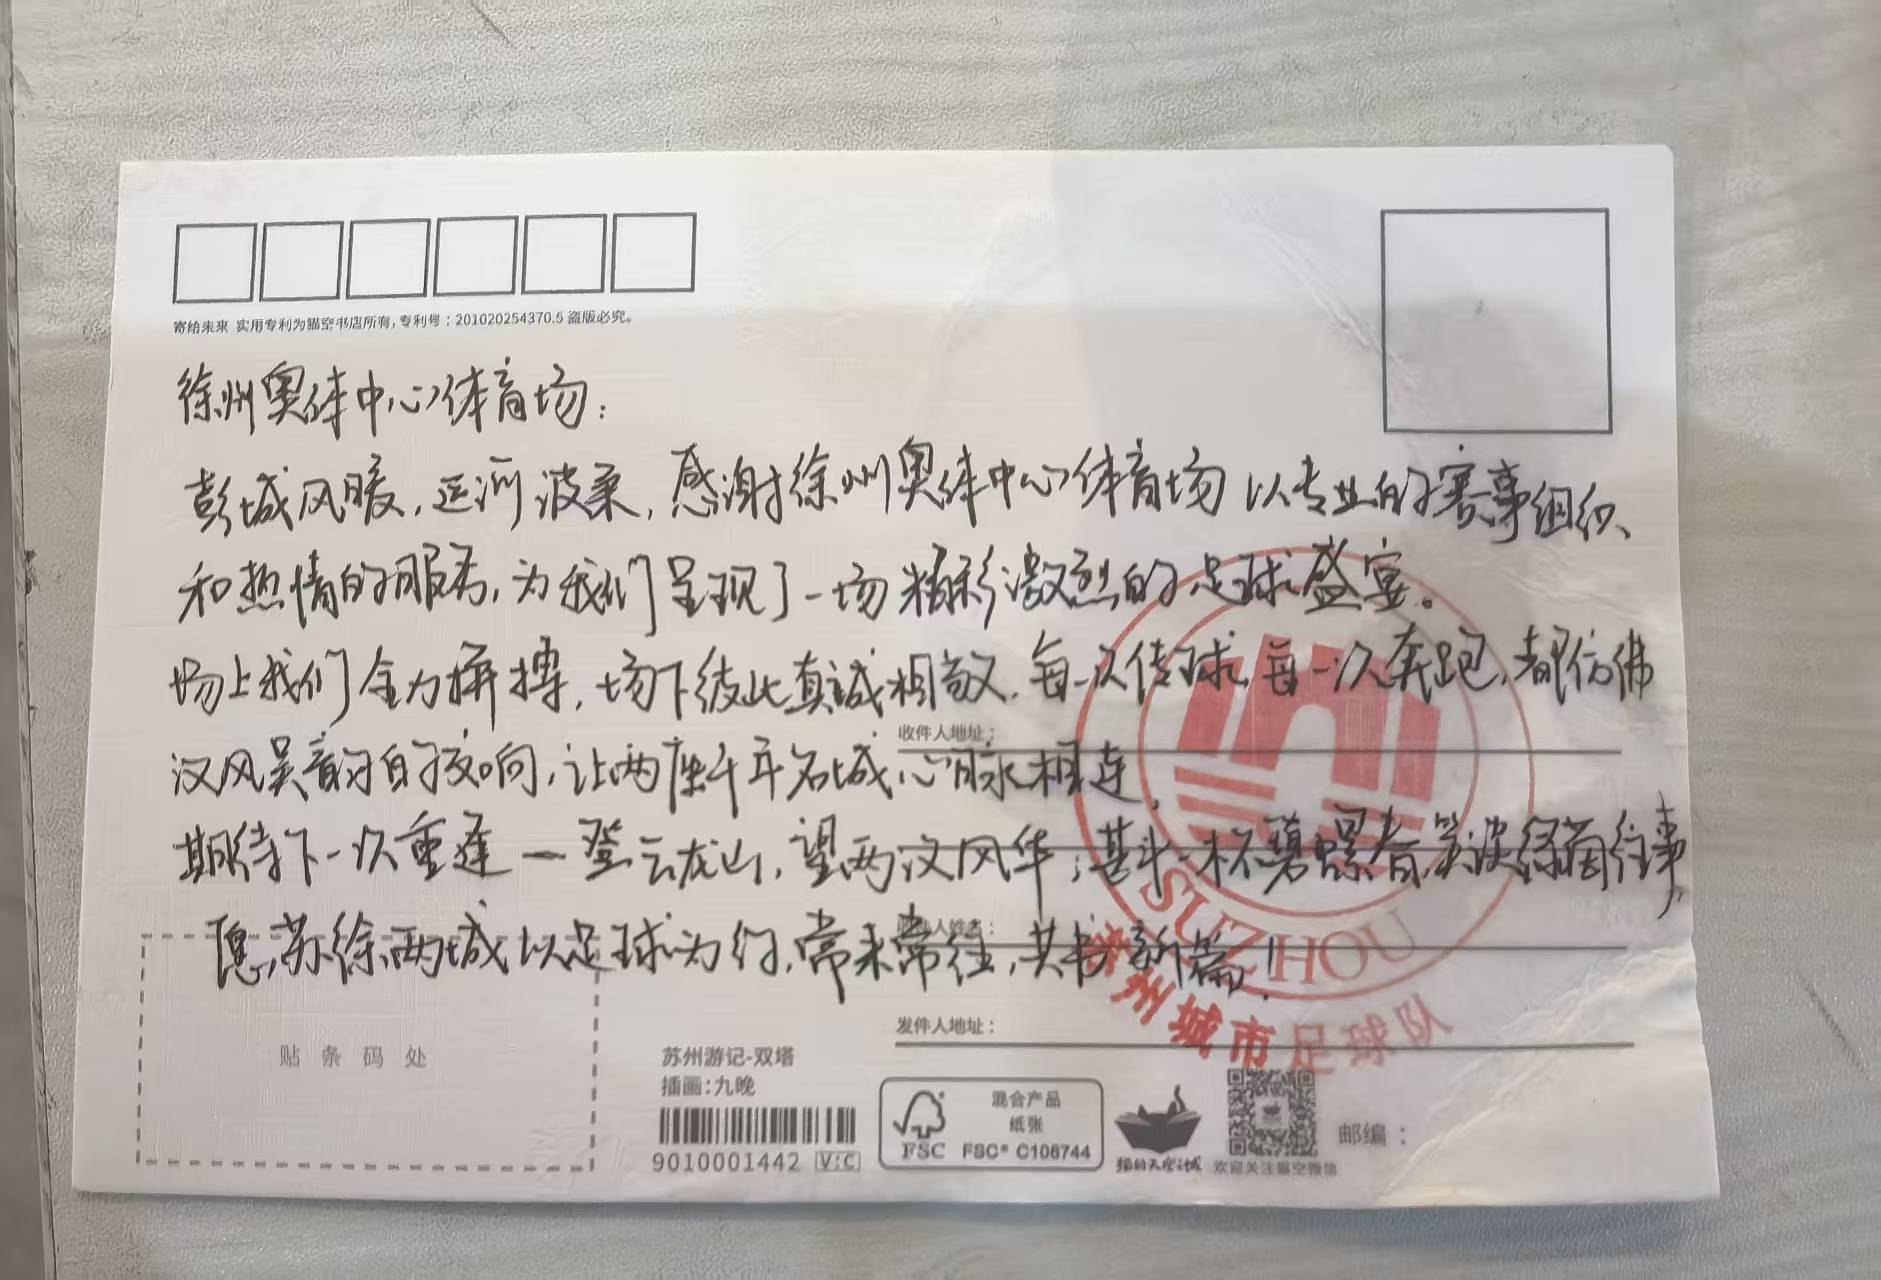 寄给未来 实用专利为猫空书店所有,专利号:201020254370.5 盗版必究。
徐州奥体中心体育场:
彭城风暖,运河波柔,感谢徐州奥体中心体育场以专业的赛事组织、
和热情的服务,为我们呈现了一场精彩激烈的足球盛宴。
场上我们全力拼搏,场下彼此真诚相敬,每一次传球,每一次奔跑,都仿佛
收件人地址:
汉风吴韵的交响,让两座千年名城心脉相连,
期待下一次重逢一登云龙山,望两汉风华,甚斗一杯碧螺春,笑谈绿茵往事,
SUZHOU
收件人姓名:
愿苏徐两城以足球为约,常来常往,共书新篇!
苏州城市足球队
发件人地址:
贴条码处
苏州游记-双塔
插画:九晚
9010001442 V:C
FSC
混合产品
纸张
FSC® C106744
猫的天空之城
欢迎关注猫空微信
邮编: